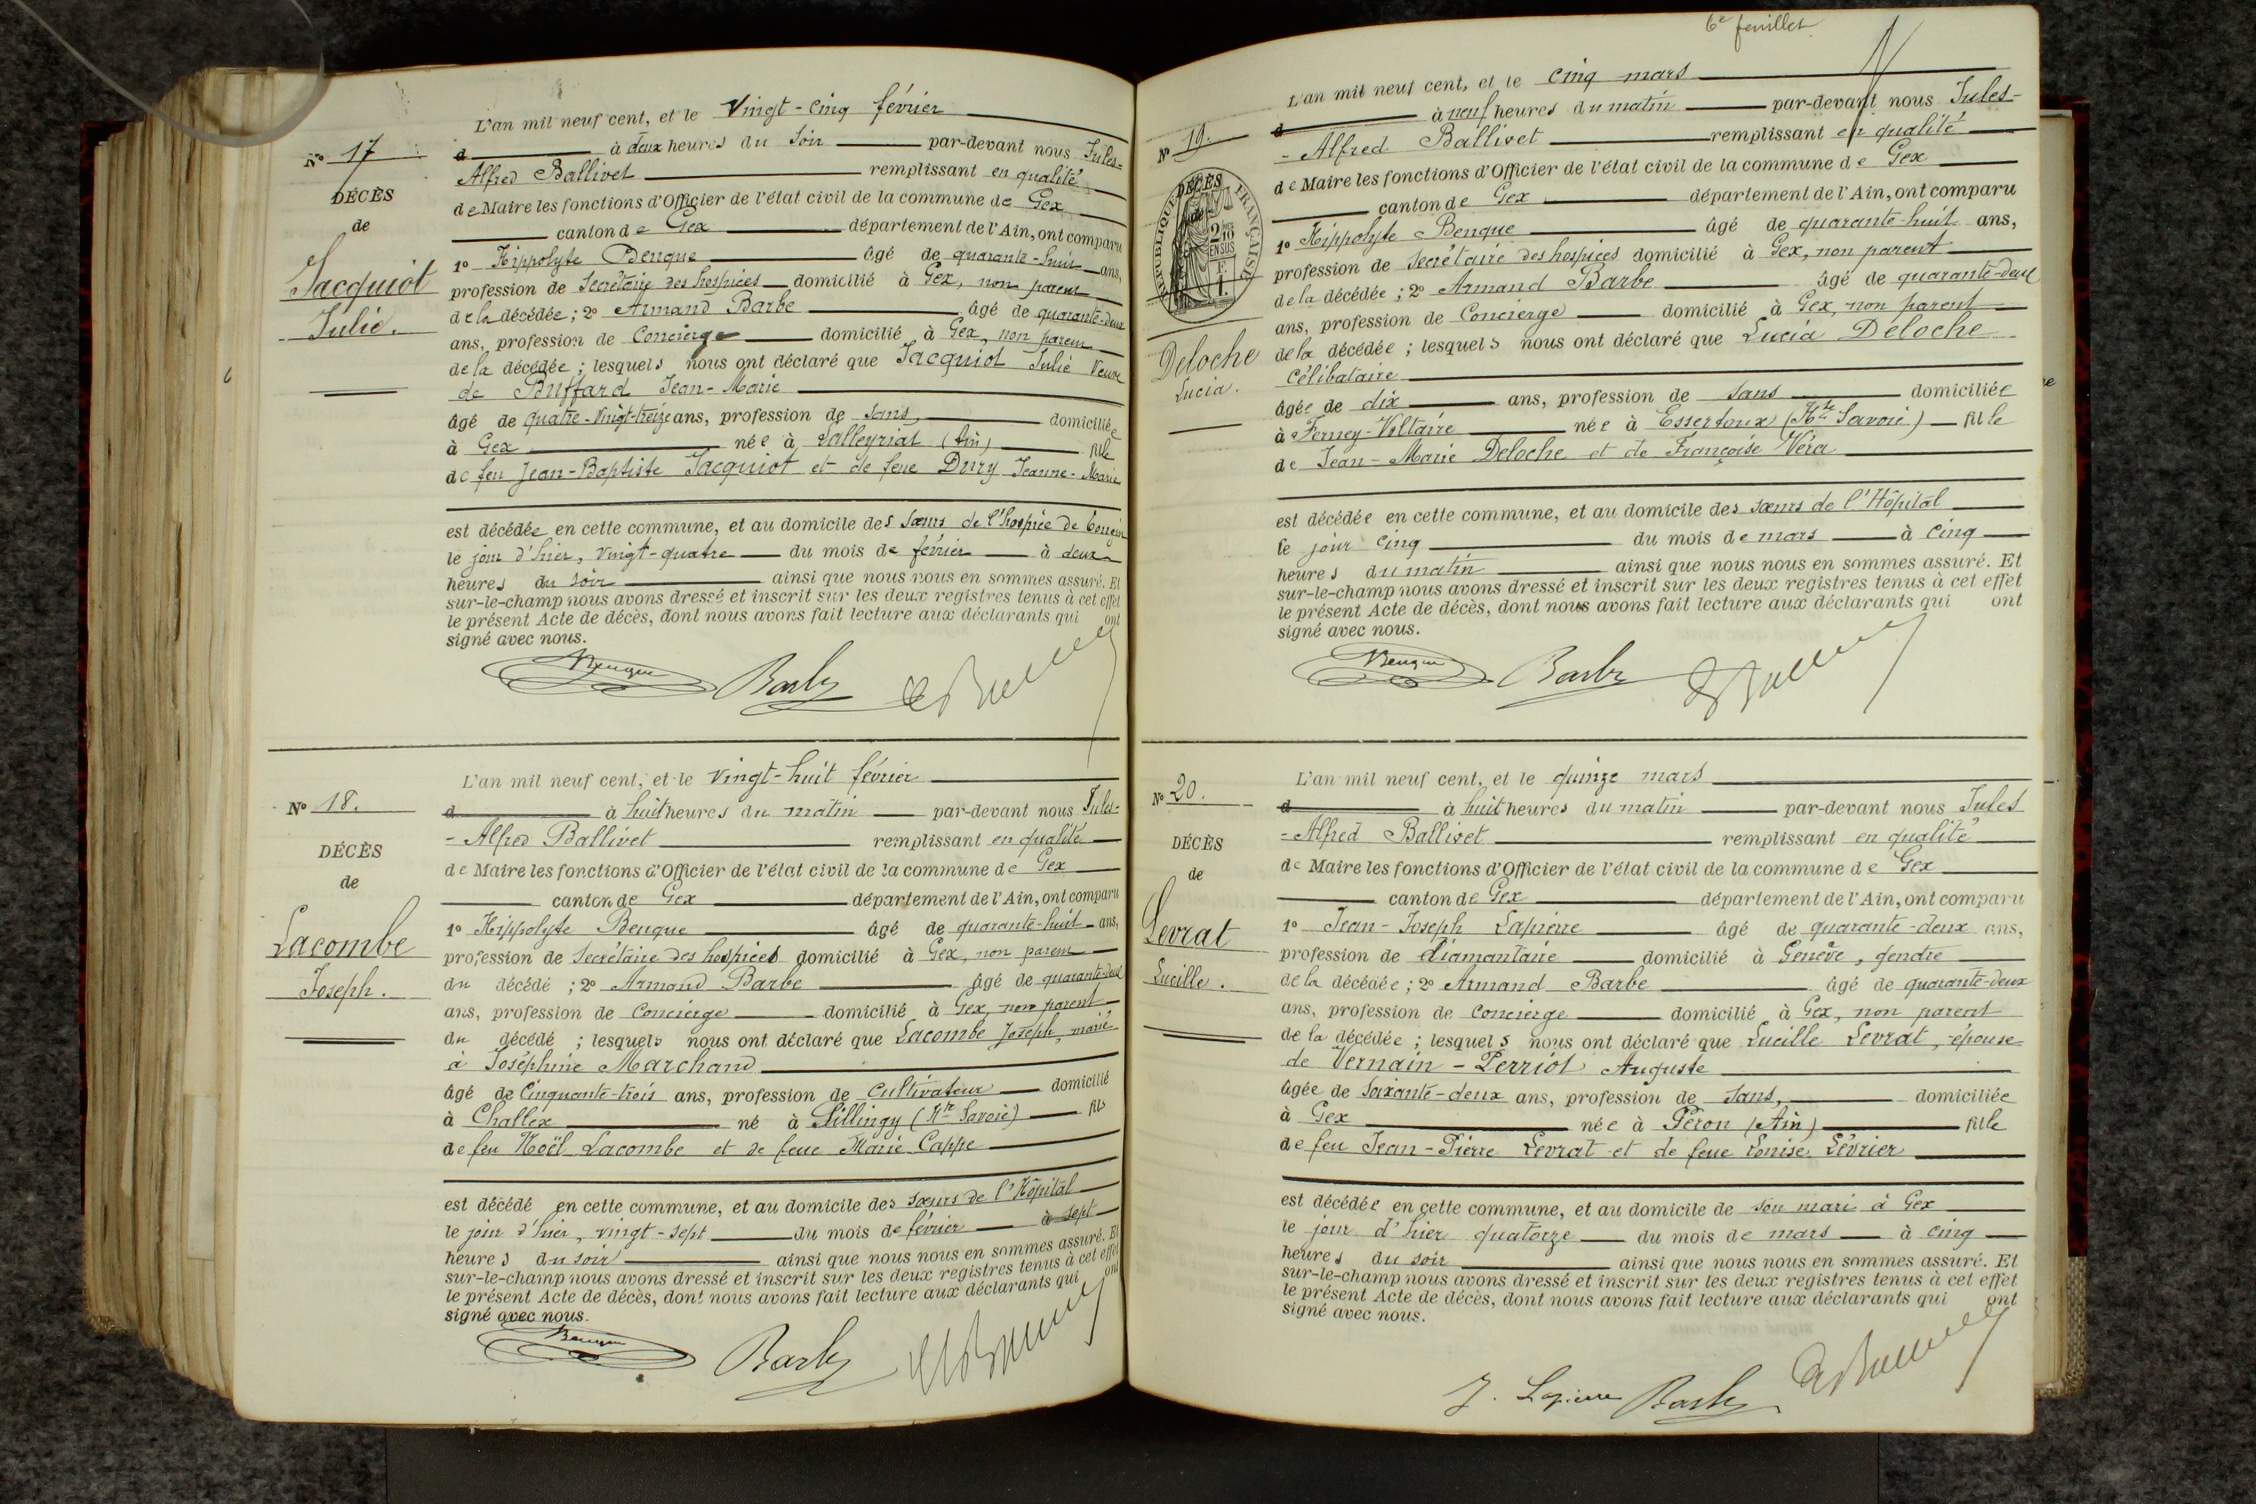 L'an mil neuf cent, et le Vingt-cinq février
Nº 17
d à deux heures du soir par-devant nous Jules-
Alfred Ballivet remplissant en qualité
DÉCÈS
de Maire les fonctions d'Officier de l'état civil de la commune de Gex
de
canton de Gex département de l'Ain, ont comparu
Jacquiot
Julie.
1º Hippolyte Benque âgé de quarante-huit ans,
profession de Secrétaire des hospices domicilié à Gex, non parent
de la décédée ; 2º Armand Barbe âgé de quarante-deux
ans, profession de Concierge domicilié à Gex, non parent
de la décédée ; lesquels nous ont déclaré que Jacquiot Julie Veuve
de Buffard Jean-Marie
âgé de quatre-vingt-treize ans, profession de sans, domiciliée
à Gex née à Valleyriat (Ain) fille
de feu Jean-Baptiste Jacquiot et de feue Dury Jeanne-Marie
est décédée en cette commune, et au domicile des sœurs de l'hospice de Tougin
le jour d'hier, vingt-quatre du mois de février à deux
heures du soir ainsi que nous nous en sommes assuré. Et
sur-le-champ nous avons dressé et inscrit sur les deux registres tenus à cet effet
le présent Acte de décès, dont nous avons fait lecture aux déclarants qui ont
signé avec nous.
Benque Barbe
L'an mil neuf cent, et le vingt-huit février
Nº 18.
d à huit heures du matin par-devant nous Jules-
-Alfred Ballivet remplissant en qualité
DÉCÈS
de Maire les fonctions d'Officier de l'état civil de la commune de Gex
de
canton de Gex département de l'Ain, ont comparu
Lacombe
Joseph.
1º Hippolyte Benque âgé de quarante-huit ans,
profession de Secrétaire des hospices domicilié à Gex, non parent
du décédé ; 2º Armand Barbe âgé de quarante-deux
ans, profession de Concierge domicilié à Gex, non parent
du décédé ; lesquels nous ont déclaré que Lacombe Joseph, marié
à Joséphine Marchand
âgé de Cinquante-trois ans, profession de cultivateur domicilié
à Challex né à Sillingy (Hte Savoie) fils
de feu Noël Lacombe et de feue Marie Cappe
est décédé en cette commune, et au domicile des sœurs de l'Hôpital
le jour d'hier, vingt-sept du mois de février à sept
heures du soir ainsi que nous nous en sommes assuré. Et
sur-le-champ nous avons dressé et inscrit sur les deux registres tenus à cet effet
le présent Acte de décès, dont nous avons fait lecture aux déclarants qui ont
signé avec nous.
Benque Barbe
6e feuillet
L'an mil neuf cent, et le cinq mars
Nº 19.
d à neuf heures du matin par-devant nous Jules-
-Alfred Ballivet remplissant en qualité
DÉCÈS
de
RÉPUBLIQUE FRANÇAISE
2/10 EN SUS
F. 1.
de Maire les fonctions d'Officier de l'état civil de la commune de Gex
canton de Gex département de l'Ain, ont comparu
1º Hippolyte Benque âgé de quarante-huit ans,
profession de Secrétaire des hospices domicilié à Gex, non parent
de la décédée ; 2º Armand Barbe âgé de quarante-deux
ans, profession de Concierge domicilié à Gex, non parent
Deloche
Lucia.
de la décédée ; lesquels nous ont déclaré que Lucia Deloche
Célibataire
âgée de dix ans, profession de sans domiciliée
à Ferney-Voltaire née à Essertoux (Hte Savoie) fille
de Jean-Marie Deloche et de Françoise Véra
est décédée en cette commune, et au domicile des sœurs de l'Hôpital
le jour cinq du mois de mars à cinq
heures du matin ainsi que nous nous en sommes assuré. Et
sur-le-champ nous avons dressé et inscrit sur les deux registres tenus à cet effet
le présent Acte de décès, dont nous avons fait lecture aux déclarants qui ont
signé avec nous.
Benque Barbe
L'an mil neuf cent, et le quinze mars
Nº 20.
d à huit heures du matin par-devant nous Jules
-Alfred Ballivet remplissant en qualité
DÉCÈS
de Maire les fonctions d'Officier de l'état civil de la commune de Gex
de
canton de Gex département de l'Ain, ont comparu
Levrat
Lucille.
1º Jean-Joseph Lapierre âgé de quarante-deux ans,
profession de Diamantaire domicilié à Genève, gendre
de la décédée ; 2º Armand Barbe âgé de quarante-deux
ans, profession de Concierge domicilié à Gex, non parent
de la décédée ; lesquels nous ont déclaré que Lucille Levrat, épouse
de Vernain-Perriot Auguste
âgée de Soixante-deux ans, profession de sans, domiciliée
à Gex née à Péron (Ain) fille
de feu Jean-Pierre Levrat et de feue Louise Lévrier
est décédée en cette commune, et au domicile de son mari à Gex
le jour d'hier quatorze du mois de mars à cinq
heures du soir ainsi que nous nous en sommes assuré. Et
sur-le-champ nous avons dressé et inscrit sur les deux registres tenus à cet effet
le présent Acte de décès, dont nous avons fait lecture aux déclarants qui ont
signé avec nous.
J. Lapierre Barbe